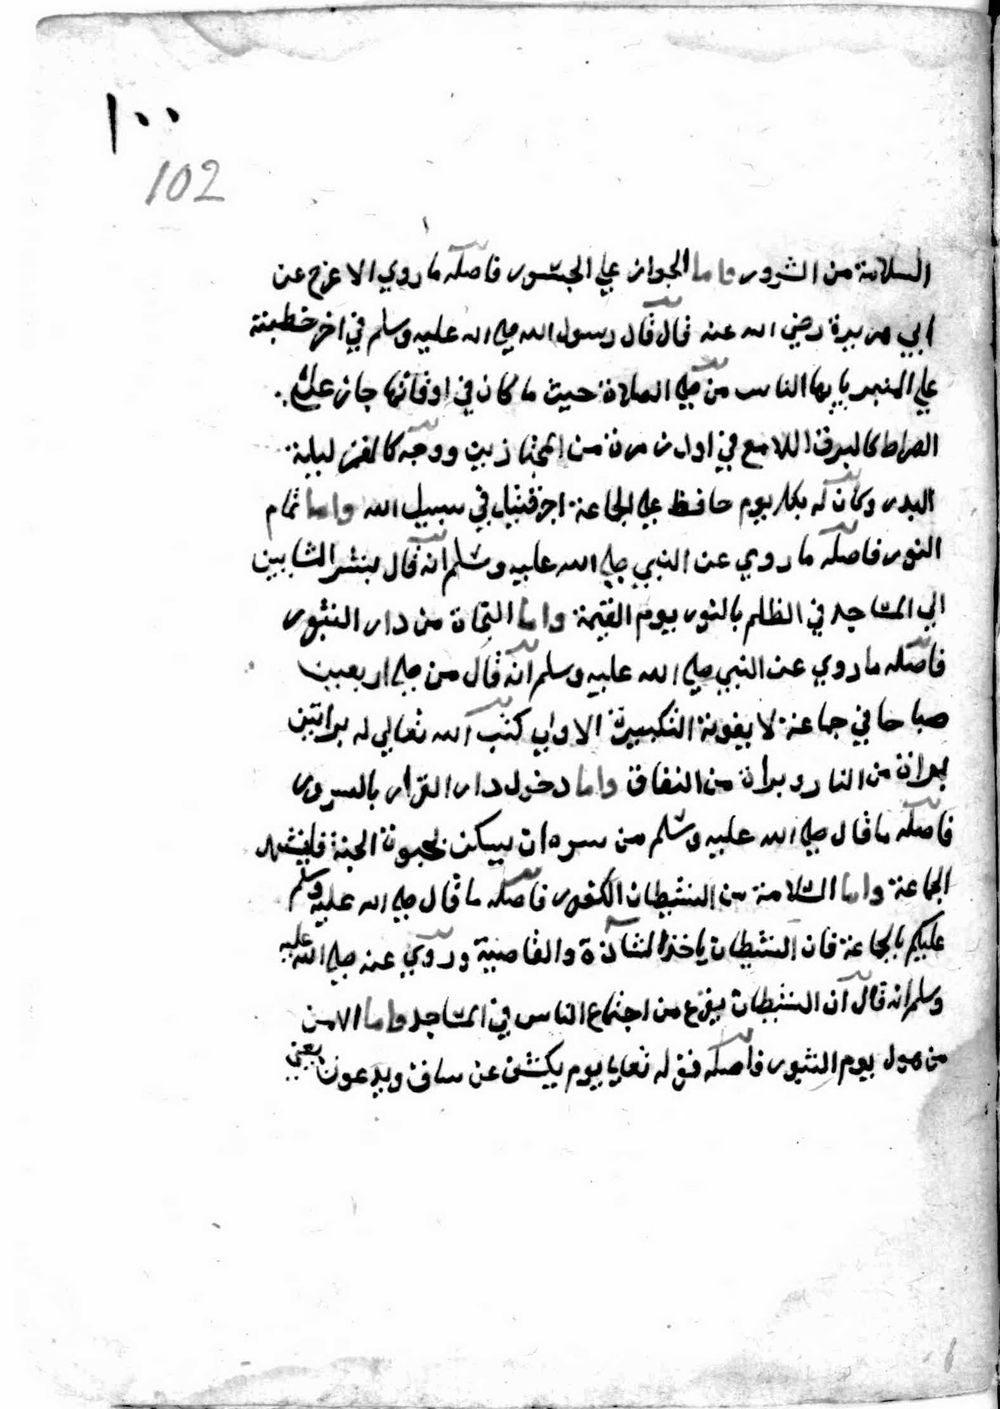 ١٠٠
102
السلامة من الشرور واما الجواز علي الجسور فاصله ما روي الاعرج عن
ابي هريرة رضي الله عنه قال قال رسول الله صلي الله عليه وسلم في اخر خطبته
علي المنبر يا ايها الناس من صلي الصلاة حيث ما كان في اوقاتها جاز علي
الصراط كالبرق اللامع في اول زمرة من المجتازين ووجهه كالقمر ليلة
البدر وكان له بكل يوم حافظ علي الجماعة اجر قتيل في سبيل الله واما تمام
النور فاصله ما روي عن النبي صلي الله عليه وسلم انه قال لبشر المشايين
الي المساجد في الظلم بالنور يوم القيمة واما النجاة من دار الثبور
فاصله ما روي عن النبي صلي الله عليه وسلم انه قال من صلي اربعين
صباحا في جماعة لا يفوته التكبيرة الاولي كتب الله تعالي له براتين
براة من النار وبراة من النفاق واما دخول دار القرار بالسرور
فاصله ما قال صلي الله عليه وسلم من سره ان يسكن بحبوة الجنة فليشهد
الجماعة واما السلامة من الشيطان الكفور فاصله ما قال صلي الله عليه وسلم
عليكم بالجماعة فان الشيطان ياخذ الشاذة والقاصية وروي عنه صلي الله عليه
وسلم انه قال ان الشيطان يفزع من اجتماع الناس في المساجد واما الامن
من هول يوم النشور فاصله قوله تعالي يوم يكشف عن ساق ويدعون يعني